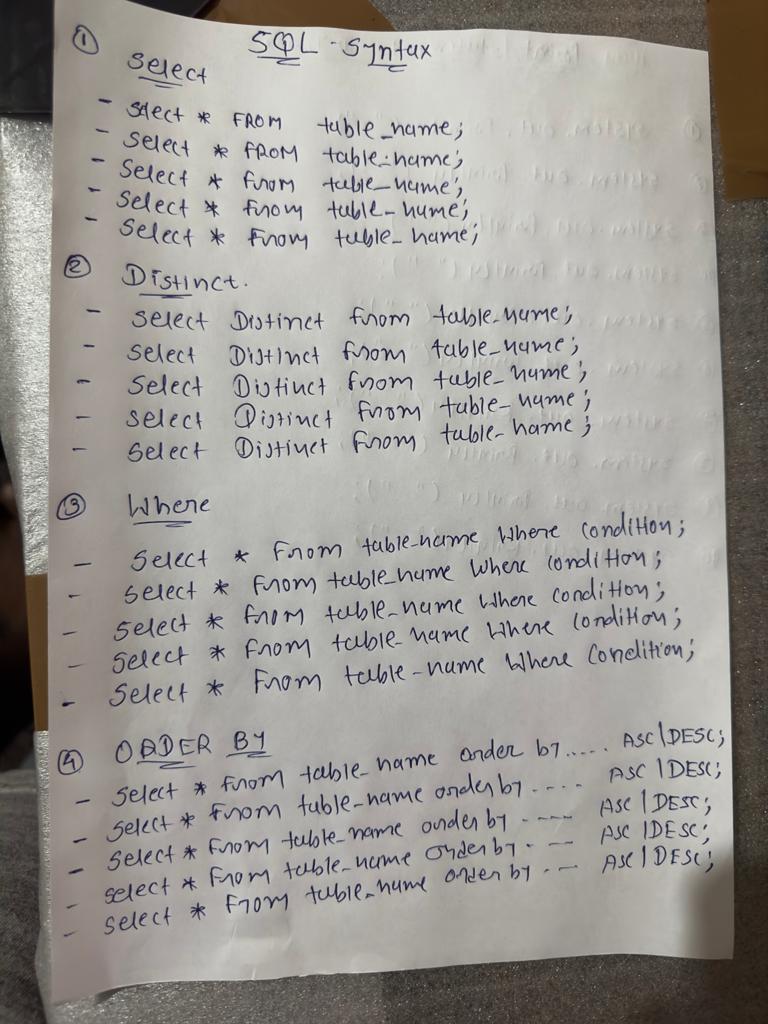 SQL - Syntax
① Select
- Select * FROM table_name;
- Select * FROM table_name;
- Select * From table_name;
- Select * From table_name;
- Select * From table_name;
② Distinct.
- Select Distinct From table_name;
- Select Distinct from table_name;
- Select Distinct from table_name;
- Select Distinct from table_name;
- Select Distinct From table_name;
③ Where
- Select * From table_name Where Condition;
- Select * From table_name Where Condition;
- Select * From table_name Where Condition;
- Select * From table_name Where Condition;
- Select * From table_name Where Condition;
④ ORDER BY
- Select * From table_name order by ..... ASC|DESC;
- Select * From table_name order by .... ASC|DESC;
- Select * From table_name order by ---- ASC|DESC;
- Select * From table_name order by . -- ASC|DESC;
- Select * From table_name order by . -- ASC|DESC;